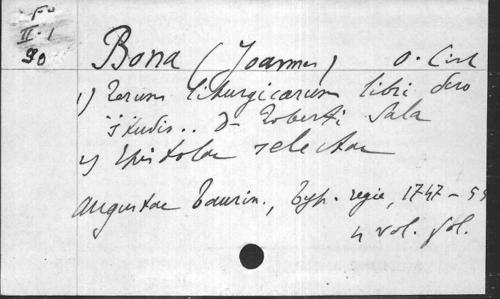 Fo
II-1
90
Bona (Joannes) O. Cist
1) Rerum liturgicarum libri duo
studio.. D Roberti Sala
2) Epistolae selectae
Augustae Taurin., typ. regia, 1747-55
4 vol. fol.